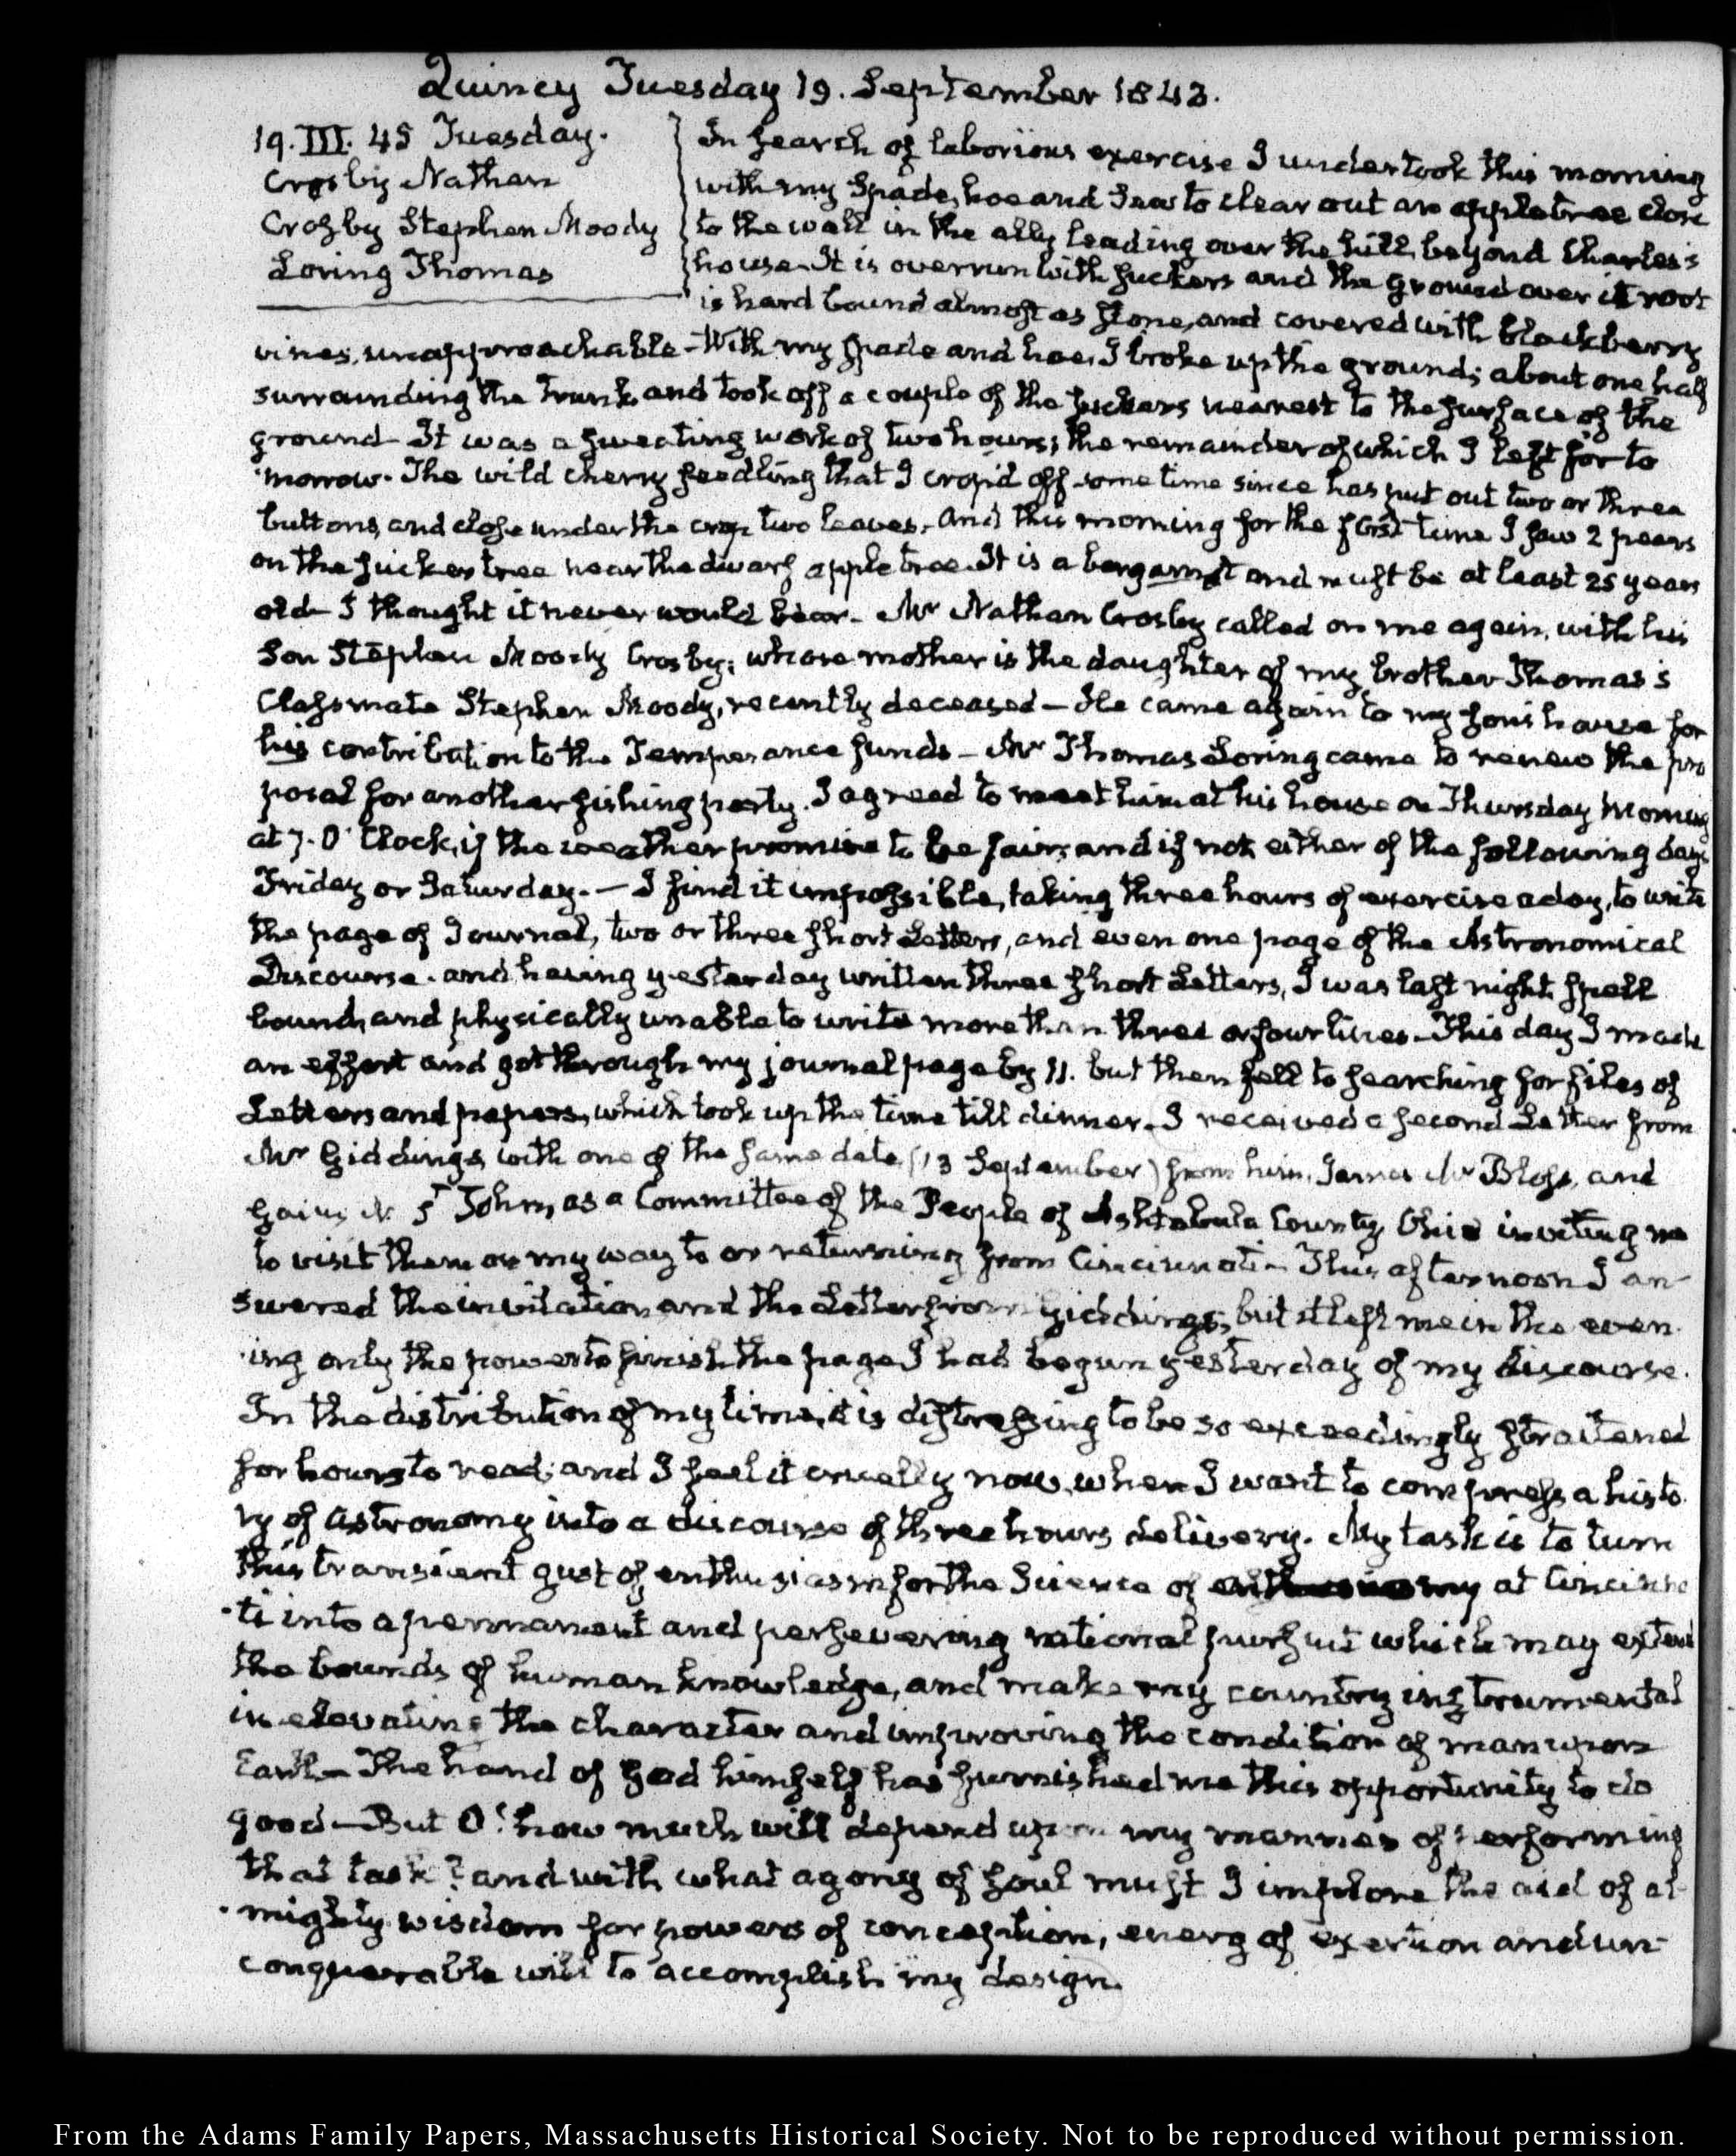 Quincy Tuesday 19. September 1843.
19. III. 45 Tuesday.
Crosby Nathan
Crosby Stephen Moody
Loring Thomas
In search of laborious exercise I undertook this morning
with my Spade, hoe and Saw to clear out an appletree close
to the wall in the ally leading over the hill, beyond Charles's
house. It is overrun with suckers and the ground over it root
is hard bound almost as stone, and covered with blackberry
vines, unapproachable - With my spade and hoe, I broke up the ground; about one half
surrounding the trunk, and took off a couple of the suckers nearest to the surface of the
ground - It was a sweating work of two hours; the remainder of which I left for to
morrow. The wild cherry seedling that I crop'd off some time since has put out two or three
buttons, and close under the crop two leaves, and this morning for the first time I saw 2 pears
on the sucker tree near the dwarf apple tree. It is a bergamot and must be at least 25 years
old - I thought it never would bear - Mr Nathan Crosby called on me again, with his
Son Stephen Moody Crosby; whose mother is the daughter of my brother Thomas's
Classmate Stephen Moody, recently deceased - He came again to my son's house for
his contribution to the Temperance funds - Mr Thomas Loring came to renew the pro
posal for another fishing party. I agreed to meet him at his house on Thursday Morning
at 7. O'Clock, if the weather promise to be fair; and if not, either of the following days
Friday or Saturday. - I find it impossible, taking three hours of exercise a day, to write
the page of Journal, two or three short Letters, and even one page of the Astronomical
Discourse. and having yesterday written three short Letters, I was last night spell
bound, and physically unable to write more than three or four lines - This day I made
an effort and got through my journal page by 11. but then fell to searching for files of
Letters and papers, which took up the time till dinner. I received a second Letter from
Mr Giddings, with one of the same date (13 September) from him, James Bloss, and
Gaius St John, as a Committee of the People of Ashtabula County, Ohio inviting me
to visit them on my way to or returning from Cincinnati - This afternoon I an-
swered the invitation and the Letter from Giddings; but it left me in the even
ing only the power to finish the page I had begun yesterday of my discourse.
In the distribution of my time, it is distressing to be so exceedingly straitened
for hours to read; and I feel it cruelly now, when I want to compress a histo
ry of astronomy into a discourse of three hours delivery. My task is to turn
this transient gust of enthusiasm for the Science of at Cincinna
ti into a permanent and persevering national pursuit which may extend
the bounds of human knowledge, and make my country instrumental
in elevating the character and improving the condition of man upon
Earth - The hand of God himself has furnished me this opportunity to do
good - But O! how much will depend upon my manner of performing
that task? and with what agony of soul must I implore the aid of al
mighty wisdom for powers of conception, energ of exertion and un-
conquerable will to accomplish my design.
From the Adams Family Papers, Massachusetts Historical Society. Not to be reproduced without permission.